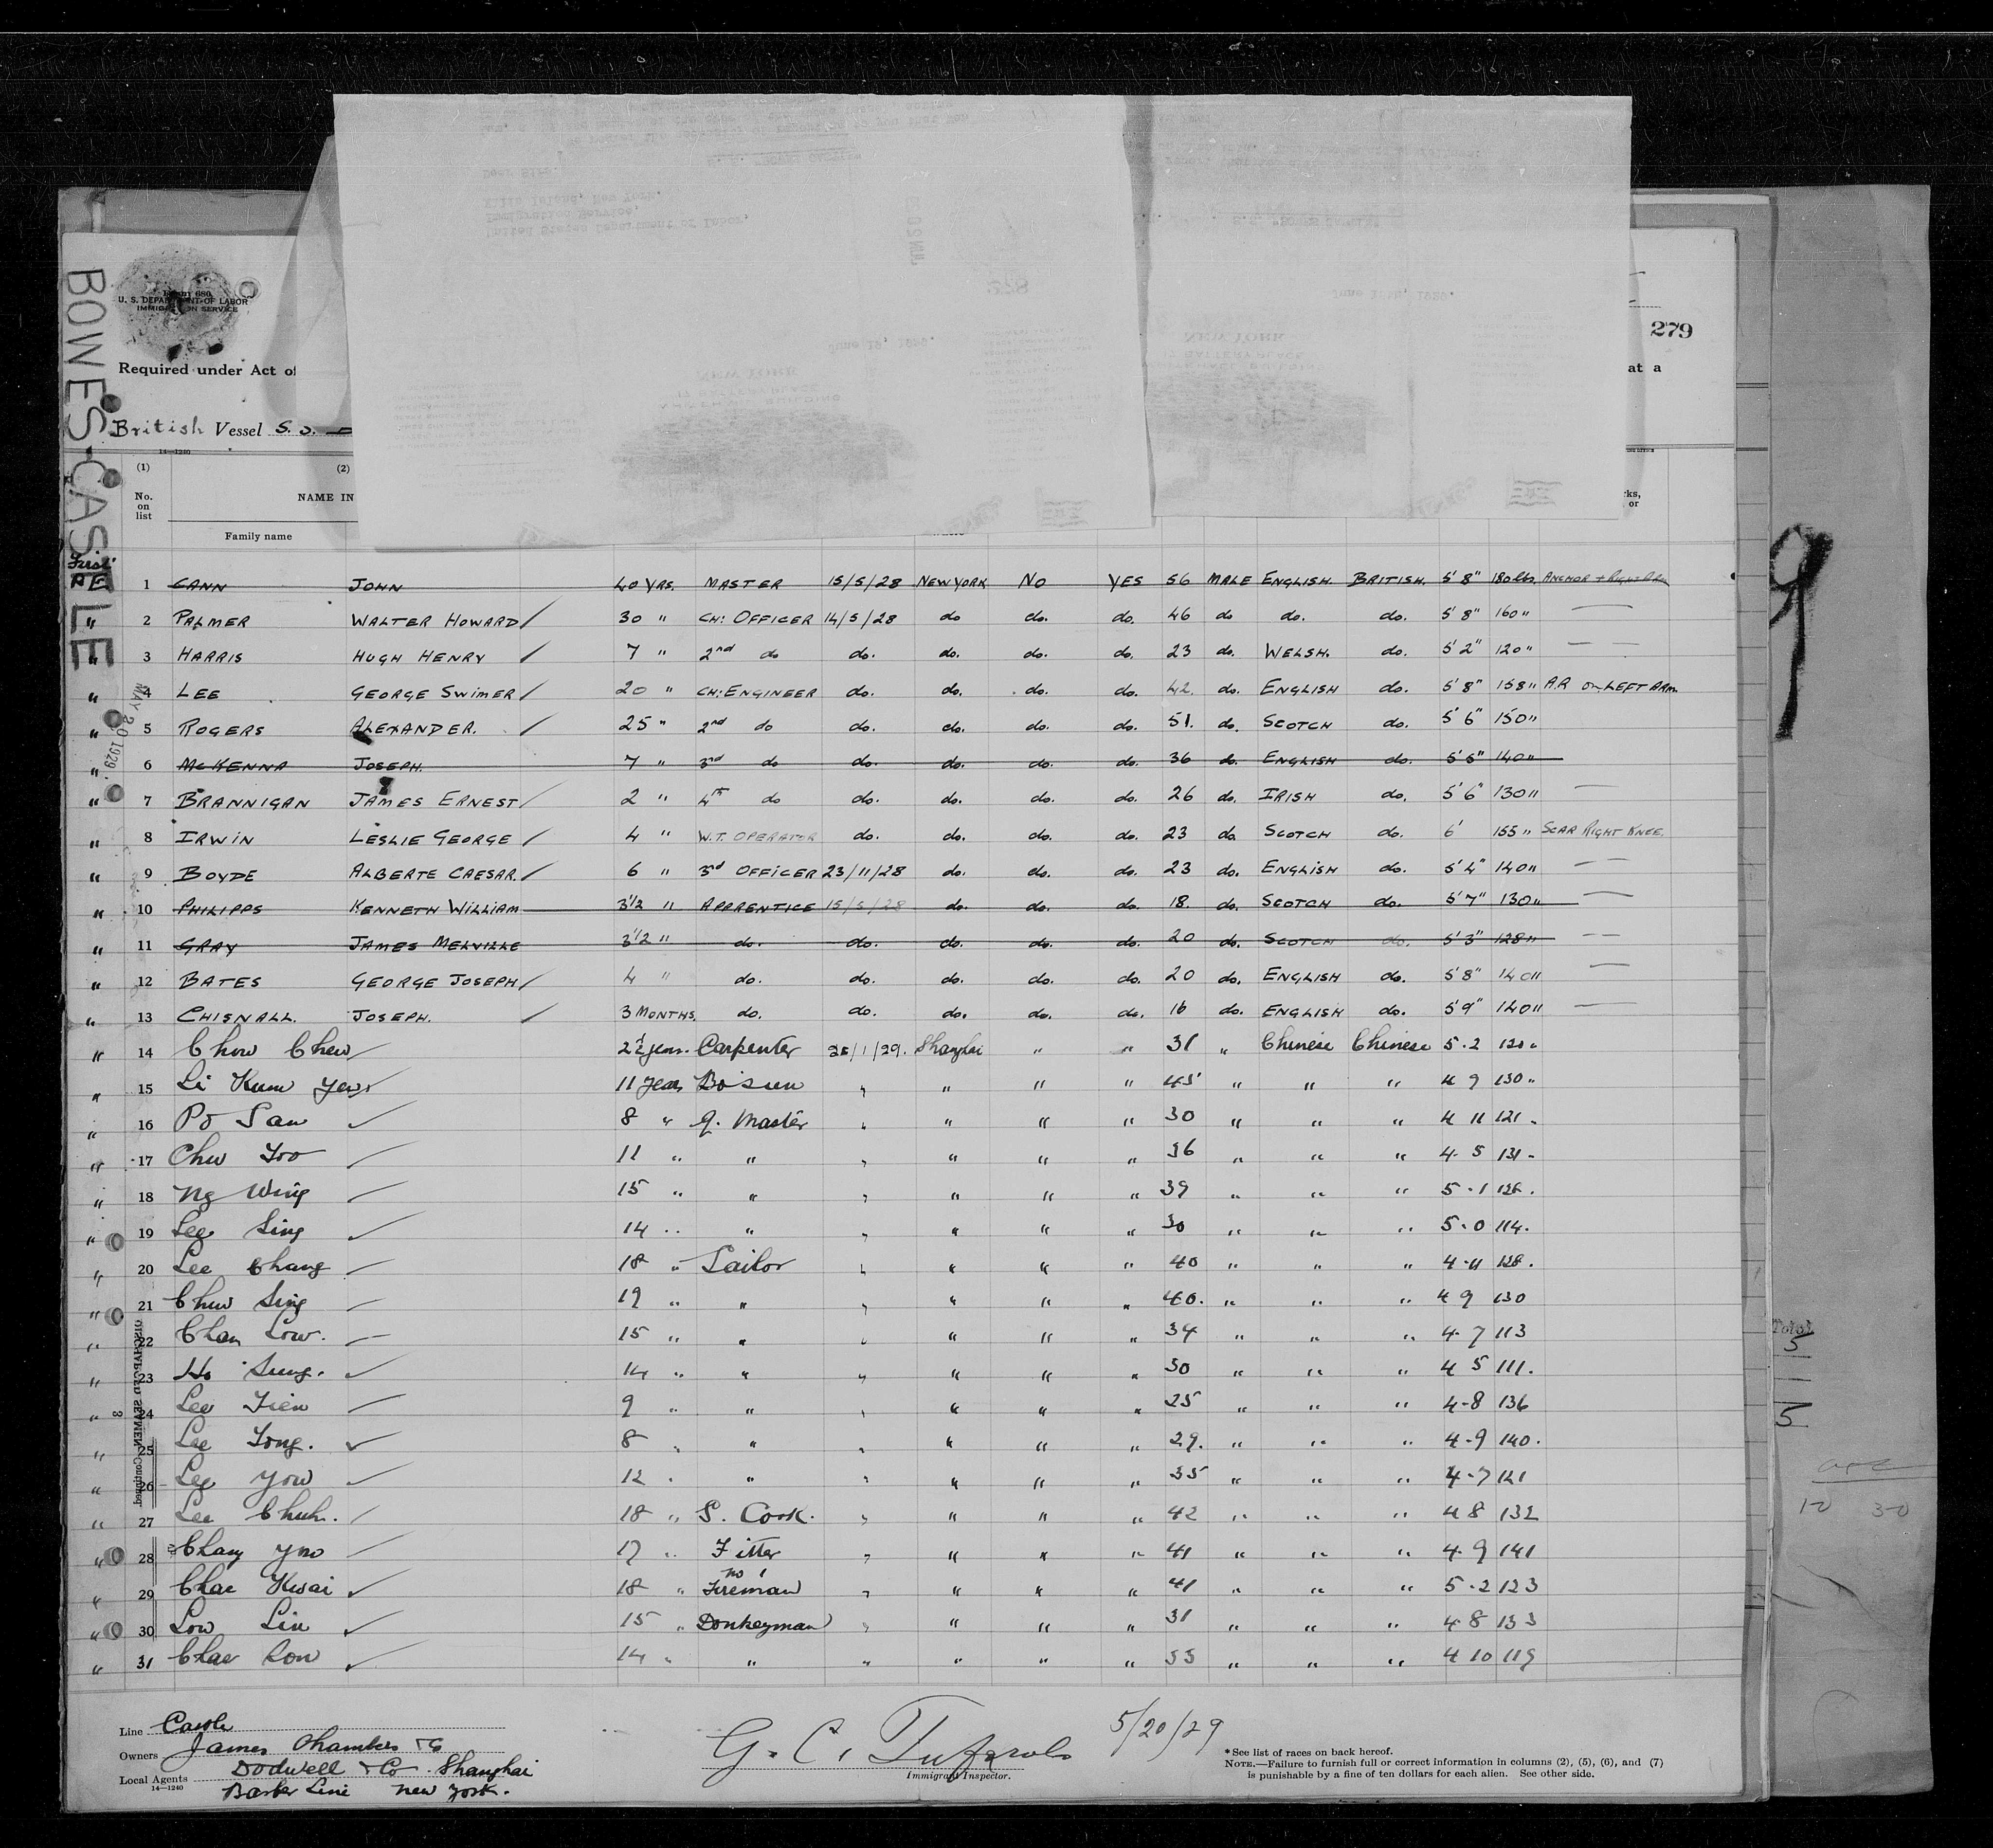 BOWES CASTLE
Form 680
U. S. DEPARTMENT OF LABOR
IMMIGRATION SERVICE
279
Required under Act of
at a
British Vessel S. S.
14—1240
(1) (2)
No. on list
NAME IN
Family name
rks, or
First
1 CANN JOHN 40 YRS. MASTER 15/5/28 NEW YORK NO YES 56 MALE ENGLISH. BRITISH. 5' 8" 180 lbs. ANCHOR + RIGHT ARM
" 2 PALMER WALTER HOWARD / 30 " CH: OFFICER 14/5/28 do do. do. 46 do do. do. 5' 8" 160 " —
" 3 HARRIS HUGH HENRY / 7 " 2nd do do. do. do. do. 23 do. WELSH. do. 5' 2" 120 " —
" 4 LEE GEORGE SWIMER / 20 " CH: ENGINEER do. do. do. do. 42. do. ENGLISH do. 5' 8" 158 " A.R on LEFT ARM
" 5 ROGERS ALEXANDER. / 25 " 2nd do do. do. do. do. 51. do. SCOTCH do. 5' 6" 150 "
" 6 McKENNA JOSEPH. 7 " 3rd do do. do. do. do. 36 do. ENGLISH do. 5' 5" 140 "
" 7 BRANNIGAN JAMES ERNEST / 2 " 4th do do. do. do. do. 26 do. IRISH do. 5' 6" 130 " —
" 8 IRWIN LESLIE GEORGE / 4 " W.T. OPERATOR do. do. do. do. 23 do. SCOTCH do. 6' 155 " SCAR RIGHT KNEE
" 9 BOYDE ALBERTE CAESAR. / 6 " 3rd OFFICER 23/11/28 do. do. do. 23 do. ENGLISH do. 5' 4" 140 " —
" 10 PHILIPPS KENNETH WILLIAM 3 1/2 " APPRENTICE 15/5/28 do. do. do. 18. do. SCOTCH do. 5' 7" 130 " —
" 11 GRAY JAMES MELVILLE 3 1/2 " do. do. do. do. do. 20 do. SCOTCH do. 5' 3" 128 " —
" 12 BATES GEORGE JOSEPH / 4 " do. do. do. do. do. 20 do. ENGLISH do. 5' 8" 140 " —
" 13 CHISNALL. JOSEPH. / 3 MONTHS. do. do. do. do. do. 16 do. ENGLISH do. 5' 9" 140 " —
" 14 Chow Chew 2 1/2 years. Carpenter /1/29. Shanghai " " 31 " Chinese Chinese 5.2 "
" 15 Li Kum Yew 11 years Bo'sun " " " " 45 " " " 4 9 130 "
" 16 Po San 8 " Q. Master " " " " 30 " " " 4 11 121
" 17 Chew Yoo 11 " " " " " " 36 " " " 4 5 131
" 18 Ng Wing 15 " " " " " " 39 " " " 5.1
" 19 Lee Sing 14 " " " " " " 30 " " " 5.0 114.
" 20 Lee Chang 18 " Sailor " " " " 40 " " " 4.11 128.
" 21 Chew Sing 19 " " " " " " 40. " " " 4 9 130
" 22 Chan Low. 15 " " " " " " 34 " " " 4.7 113
" 23 Ho Sung. 14 " " " " " " 30 " " " 4 5 111.
" 24 Lee Fien 9 " " " " " " 25 " " " 4-8 136
" 25 Lee Yong. 8 " " " " " " 29. " " " 4-9 140.
" 26 Lee Yow 12 " " " " " " 35 " " " 4-7 121
" 27 Lee Chuh. 18 " S. Cook. " " " " 42 " " " 4 8 132
" 28 Chang Yoo 17 " Fitter " " " " 41 " " " 4.9 141
" 29 Chae Kwai 18 " No 1 Fireman " " " " 41 " " " 5.2 123
" 30 Low Lin 15 " Donkeyman " " " " 31 " " " 4 8 133
" 31 Chae Son 14 " " " " " " 33 " " " 4 10 119
MAY 20 1929
DISCHARGED SEAMEN—Continued
Total
5
5
Line Castle
Owners James Chambers & Co
Local Agents Dodwell & Co. Shanghai
14—1240
Barber Line New York.
G. C.
Immigrant Inspector.
5/20/29
* See list of races on back hereof.
NOTE.—Failure to furnish full or correct information in columns (2), (5), (6), and (7)
is punishable by a fine of ten dollars for each alien. See other side.